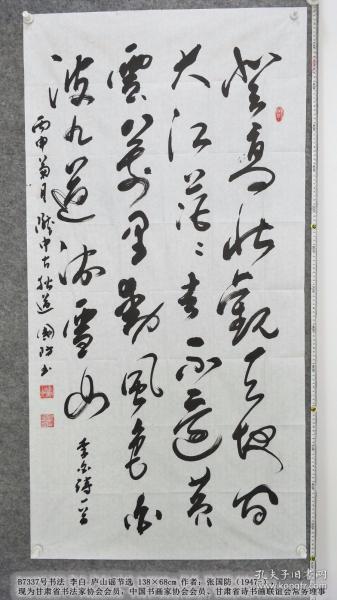 登高壮觀天地间
大江茫〻去不還黄
雲萬里動風色白
波九道流雪山
李白詩一首
丙申菊月隴中古稀國防书
B7337号书法 李白 庐山谣节选 138×68cm 作者:张国防(1947-),
现为甘肃省书法家协会会员,中国书画家协会会员、甘肃省诗书画联谊会常务理事
孔夫子旧书网